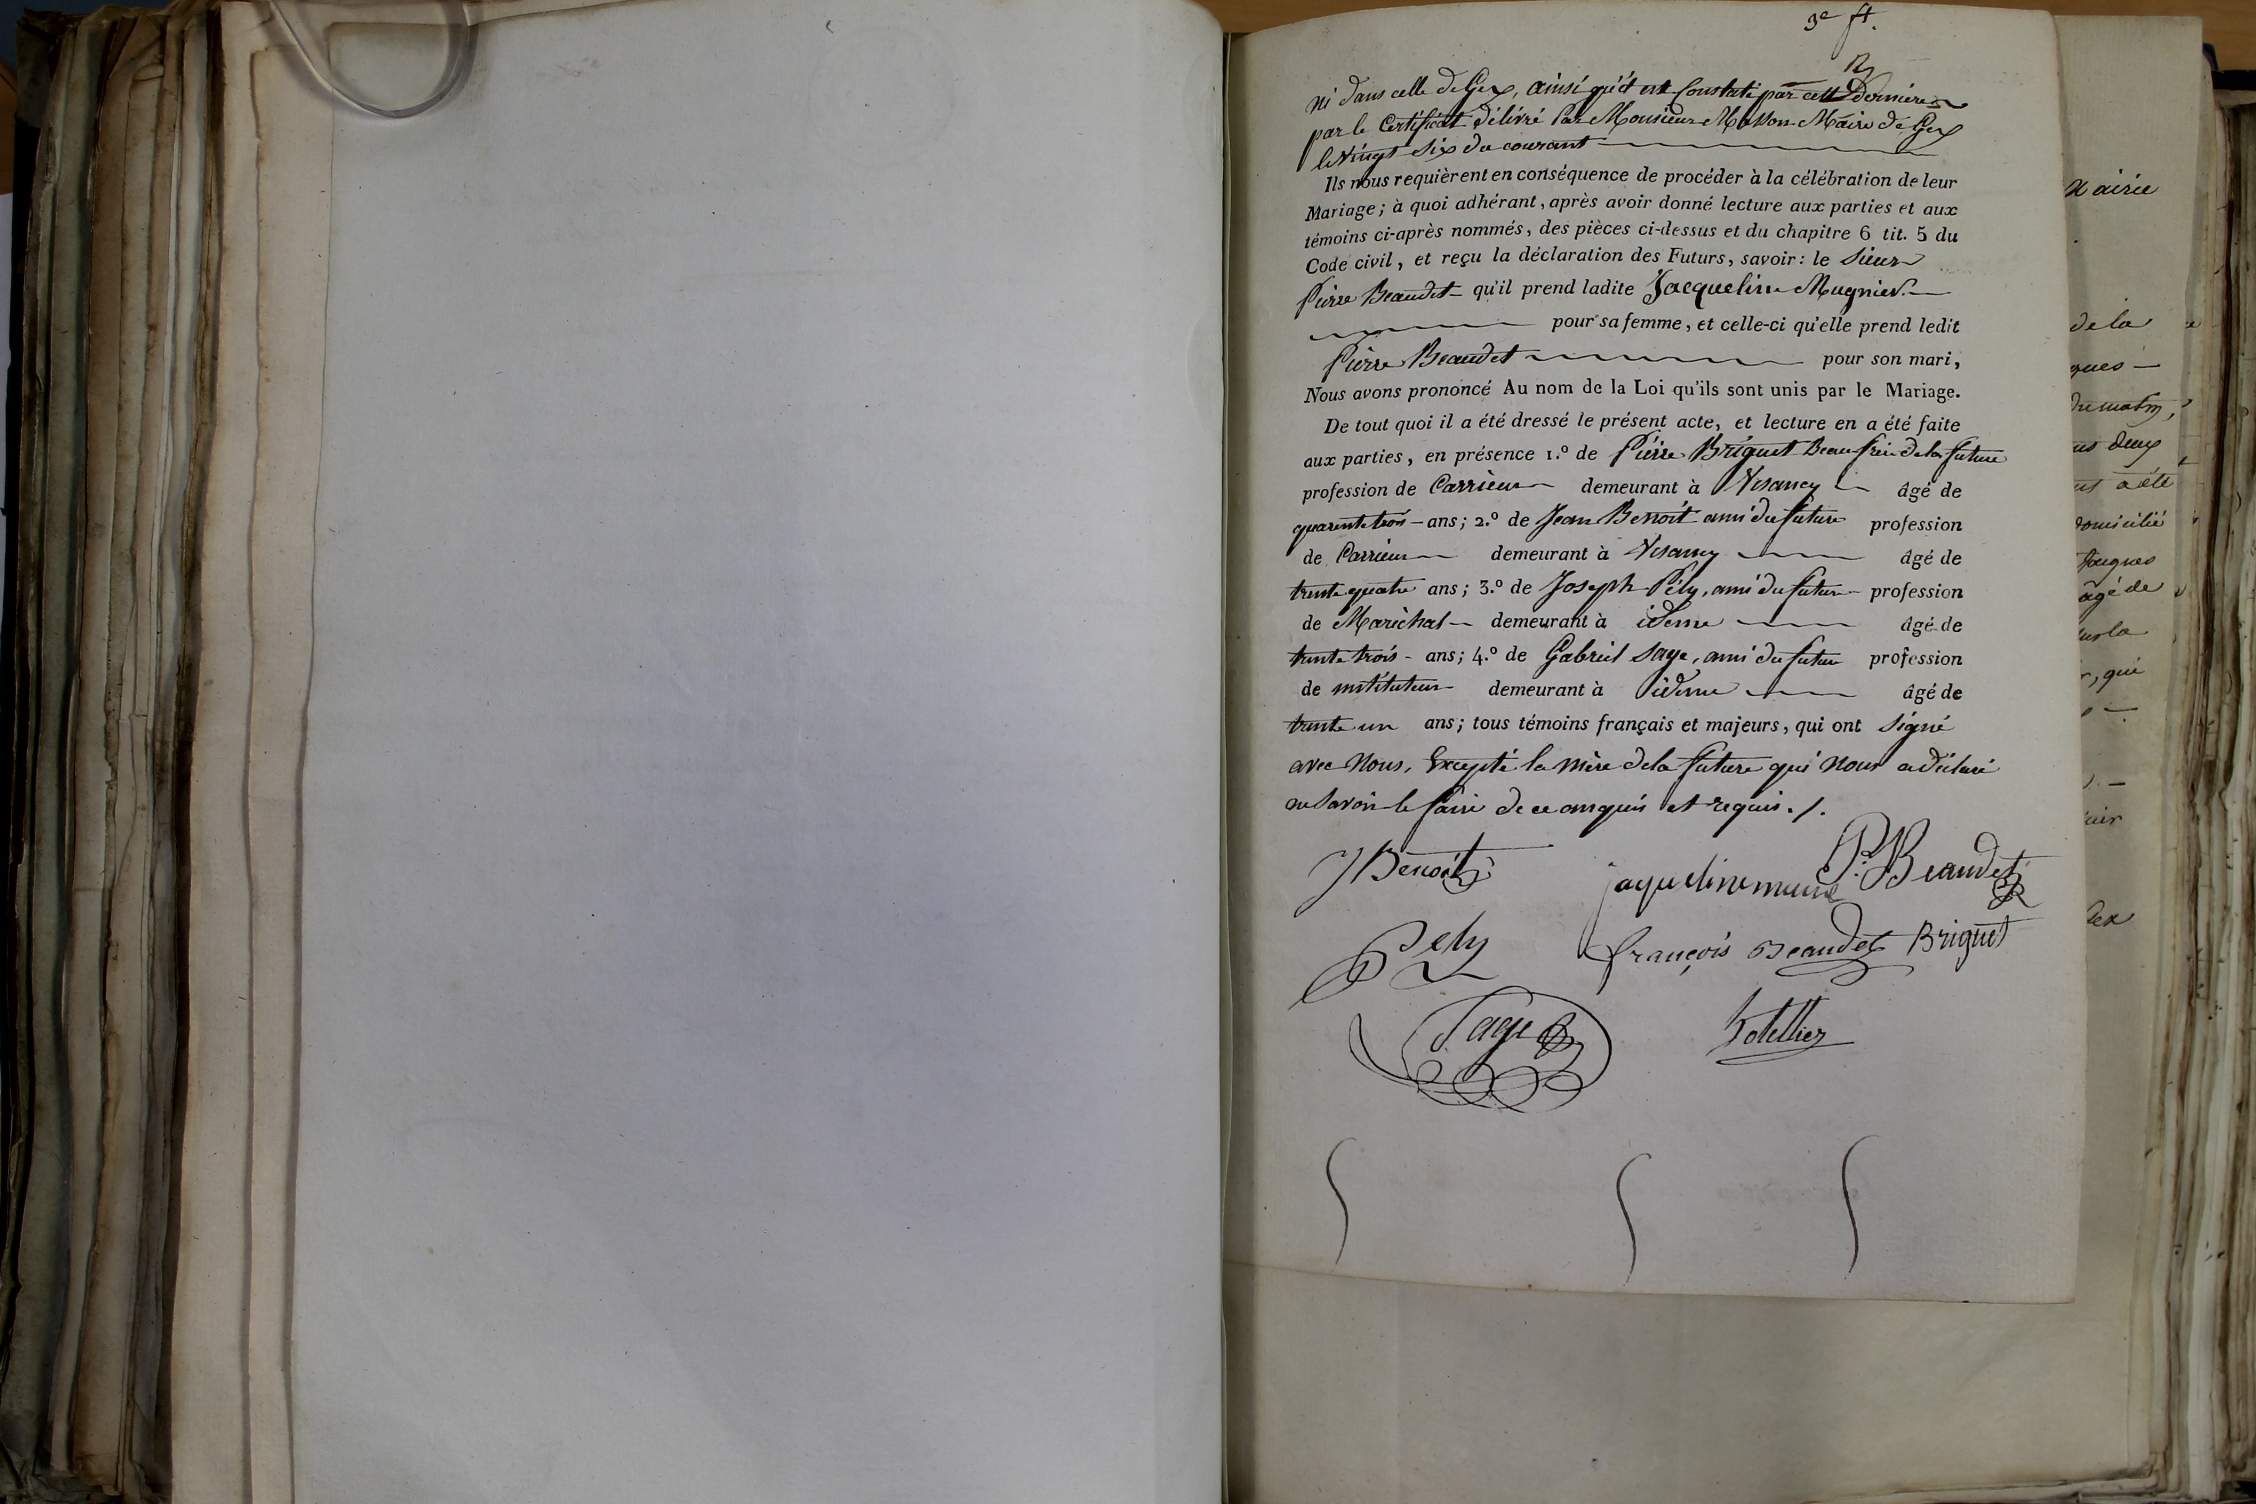 3e ft.
ni dans celle de Gex, ainsi qu'il est Constaté par cette dernière
par le Certificat délivré Par Monsieur Masson Maire de Gex
le Vingt Six du courant
Ils nous requièrent en conséquence de procéder à la célébration de leur
Mariage; à quoi adhérant, après avoir donné lecture aux parties et aux
témoins ci-après nommés, des pièces ci-dessus et du chapitre 6 tit. 5 du
Code civil, et reçu la déclaration des Futurs, savoir: le Sieur
Pierre Beaudet qu'il prend ladite Jacqueline Mugnier.
pour sa femme, et celle-ci qu'elle prend ledit
Pierre Beaudet pour son mari,
Nous avons prononcé Au nom de la Loi qu'ils sont unis par le Mariage.
De tout quoi il a été dressé le présent acte, et lecture en a été faite
aux parties, en présence 1.º de Pierre Briguet Beau frère de la future
profession de Carrieur demeurant à Vesancy âgé de
quarente trois ans; 2.º de Jean Benoit ami du future profession
de Carrieur demeurant à Vesancy âgé de
trente quatre ans; 3.º de Joseph Pély, ami du futur profession
de Maréchal demeurant à idem âgé de
trente trois ans; 4.º de Gabriel Saye, ami du futur profession
de instituteur demeurant à idem âgé de
trente un ans; tous témoins français et majeurs, qui ont signé
avec Nous, Excepté la mère de la future qui Nous a déclaré
ne Savoir le faire de ce enquis et requis ./.
J Benoit jaqueline P. Beaudet
Pely françois Beaudet Briguet
Saye
Mairie
de la
ques
du matin,
us deux
us a été
domicilié
âgé de
sur la
r, qui
Gex